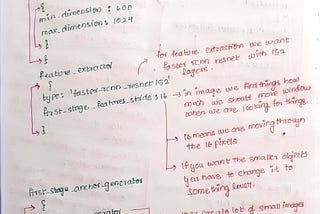 {
min_dimension : 600
max_dimension : 1024
}
}
feature_extractor
{
type: 'faster_rcnn_resnet152'
first_stage_features_stride : 16
}
for feature extraction we want
faster rcnn resnet with 152
layers.
in image we find things how
much we should move window
when we are looking for things
16 means we are moving through
the 16 pixels
if you want the smaller objects
you have to change it to
something lower.
first_stage_anchor_generator
{
create lot of small images